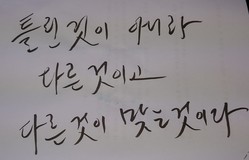 틀린것이 아니라
다른것이고
다른것이 맞는것이다